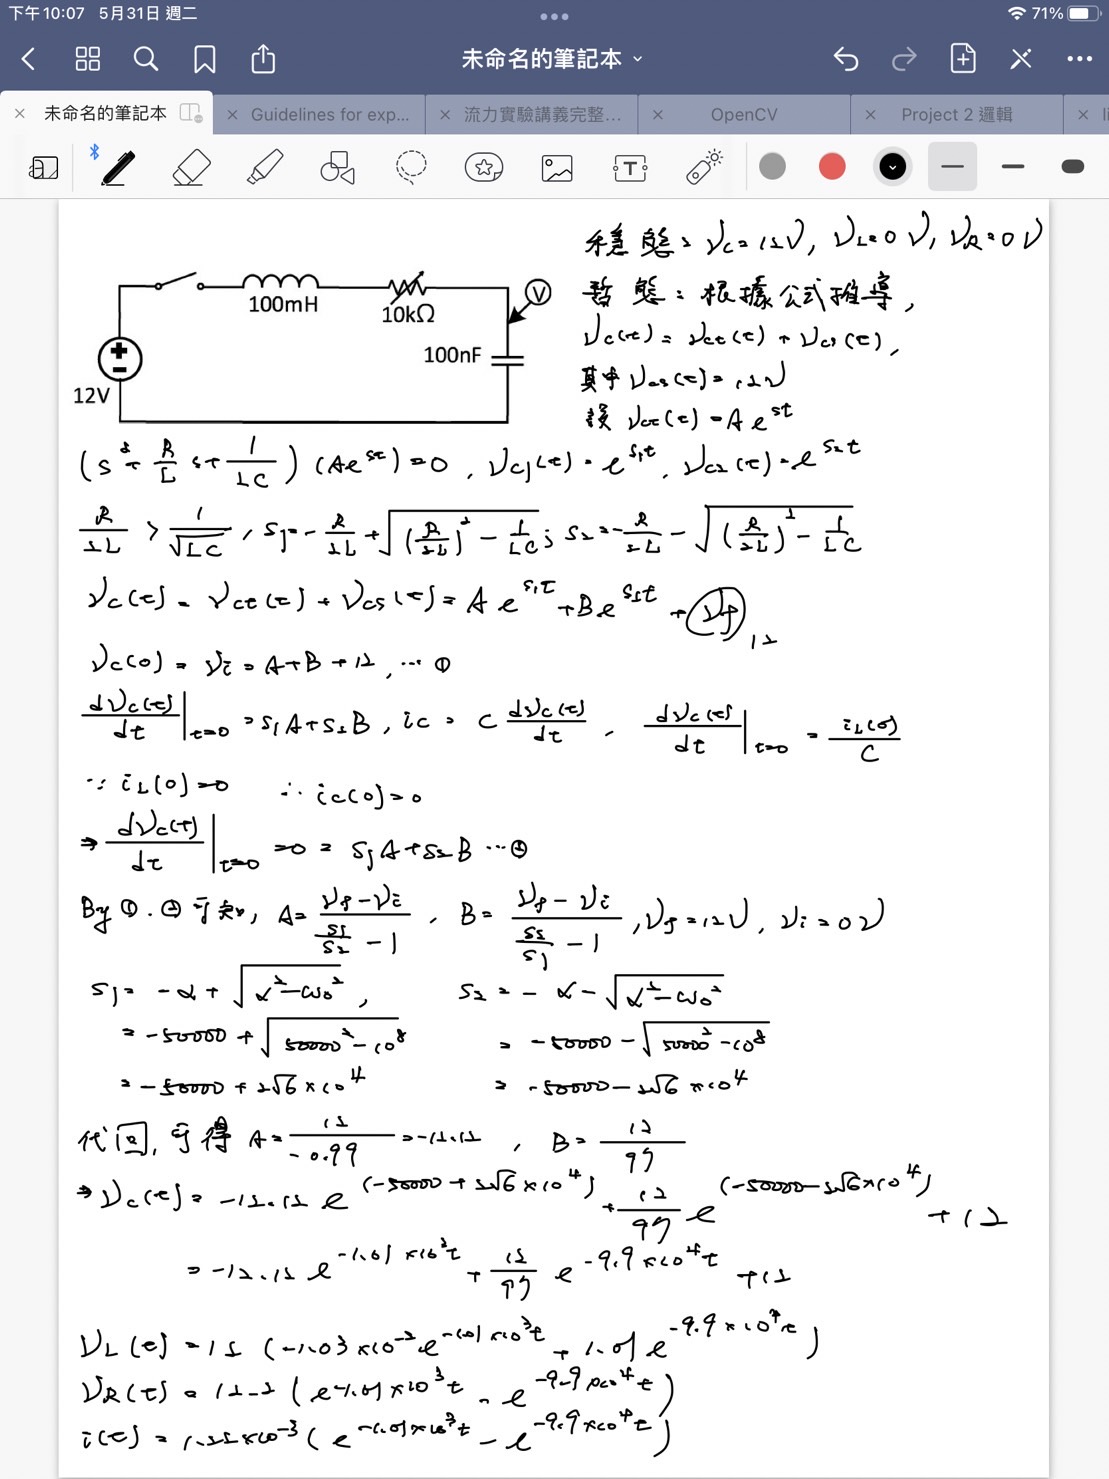 下午10:07 5月31日 週二
71%
未命名的筆記本
未命名的筆記本
Guidelines for exp...
流力實驗講義完整...
OpenCV
Project 2 邏輯
穩態: Vc=12V, VL=0V, VR=0V
暫態: 根據公式推導,
Vc(t) = Vct(t) + Vcs(t),
其中 Vcs(t)=12V
設 Vct(t) = A e^{st}
100mH
10kΩ
V
100nF
12V
(s² + R/L s + 1/LC)(Ae^{st})=0, Vc1(t) = e^{s1t}, Vc2(t) = e^{s2t}
R/2L > 1/√LC, s1 = -R/2L + √((R/2L)² - 1/LC); s2 = -R/2L - √((R/2L)² - 1/LC)
Vc(t) = Vct(t) + Vcs(t) = A e^{s1t} + B e^{s2t} + Vf
12
Vc(0) = Vi = A+B+12, ... ①
dVc(t)/dt |t=0 = s1A+s2B, ic = C dVc(t)/dt, dVc(t)/dt |t=0 = iL(0)/C
∵ iL(0)=0 ∴ ic(0)=0
⇒ dVc(t)/dt |t=0 =0 = s1A+s2B ... ②
By ①.②可知, A= (Vf-Vi)/(s1/s2 - 1), B= (Vf-Vi)/(s2/s1 - 1), Vf=12V, Vi=0V
s1= -α + √(α²-ω0²), s2 = -α - √(α²-ω0²)
= -50000 + √(50000²-10⁸) = -50000 - √(50000²-10⁸)
= -50000 + 2√6×10⁴ = -50000 - 2√6×10⁴
代回, 可得 A= 12/-0.99 = -12.12, B= 12/97
⇒ Vc(t) = -12.12 e^{(-50000+2√6×10⁴)} + 12/97 e^{(-50000-2√6×10⁴)} + 12
= -12.12 e^{-1.01×10³t} + 12/97 e^{-9.9×10⁴t} + 12
VL(t) = 12 (-1.03×10⁻²e^{-1.01×10³t} + 1.01e^{-9.9×10⁴t})
VR(t) = 12.2 (e^{-1.01×10³t} - e^{-9.9×10⁴t})
i(t) = 1.22×10⁻³ (e^{-1.01×10³t} - e^{-9.9×10⁴t})